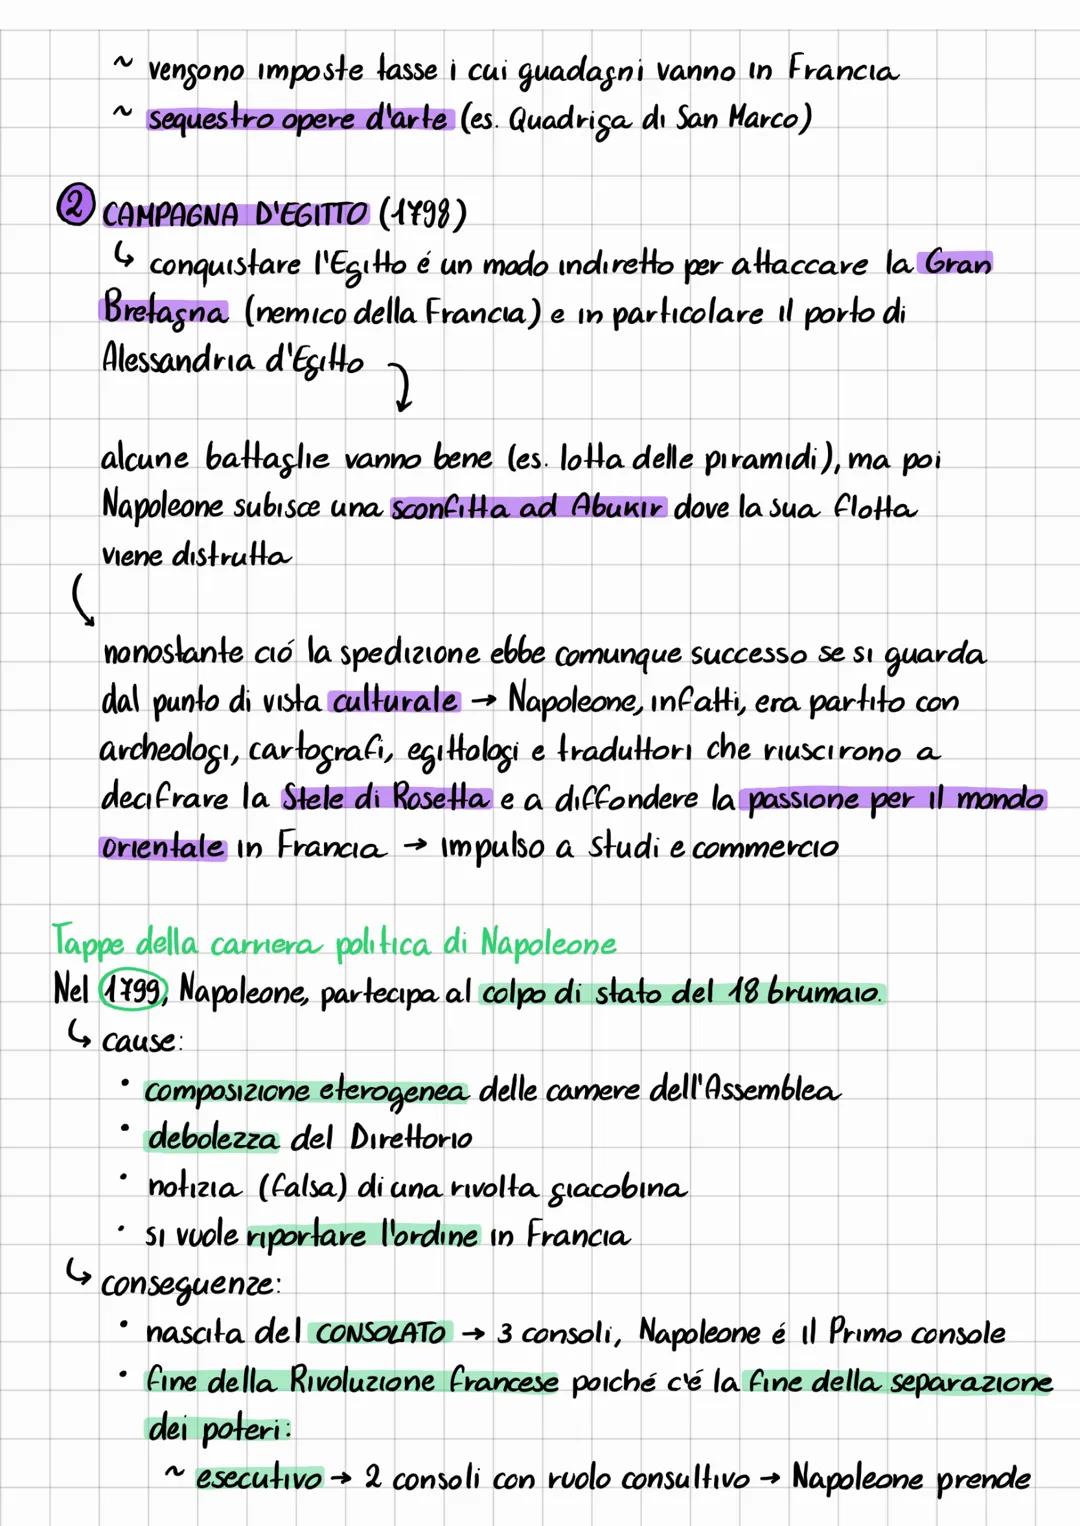 ~ vengono imposte tasse i cui guadagni vanno in Francia
~ sequestro opere d'arte (es. Quadriga di San Marco)
2 CAMPAGNA D'EGITTO (1798)
↳ conquistare l'Egitto é un modo indiretto per attaccare la Gran
Bretagna (nemico della Francia) e in particolare il porto di
Alessandria d'Egitto
alcune battaglie vanno bene (es. lotta delle piramidi), ma poi
Napoleone subisce una sconfitta ad Abukir dove la sua flotta
viene distrutta
nonostante ció la spedizione ebbe comunque successo se si guarda
dal punto di vista culturale → Napoleone, infatti, era partito con
archeologi, cartografi, egittologi e traduttori che riuscirono a
decifrare la Stele di Rosetta e a diffondere la passione per il mondo
orientale in Francia → impulso a studi e commercio
Tappe della carriera politica di Napoleone
Nel 1799, Napoleone, partecipa al colpo di stato del 18 brumaio.
↳ cause:
• composizione eterogenea delle camere dell'Assemblea
• debolezza del Direttorio
• notizia (falsa) di una rivolta giacobina
• si vuole riportare l'ordine in Francia
↳ conseguenze:
• nascita del CONSOLATO → 3 consoli, Napoleone é il Primo console
• fine della Rivoluzione francese poiché c'é la fine della separazione
dei poteri:
~ esecutivo → 2 consoli con ruolo consultivo → Napoleone prende